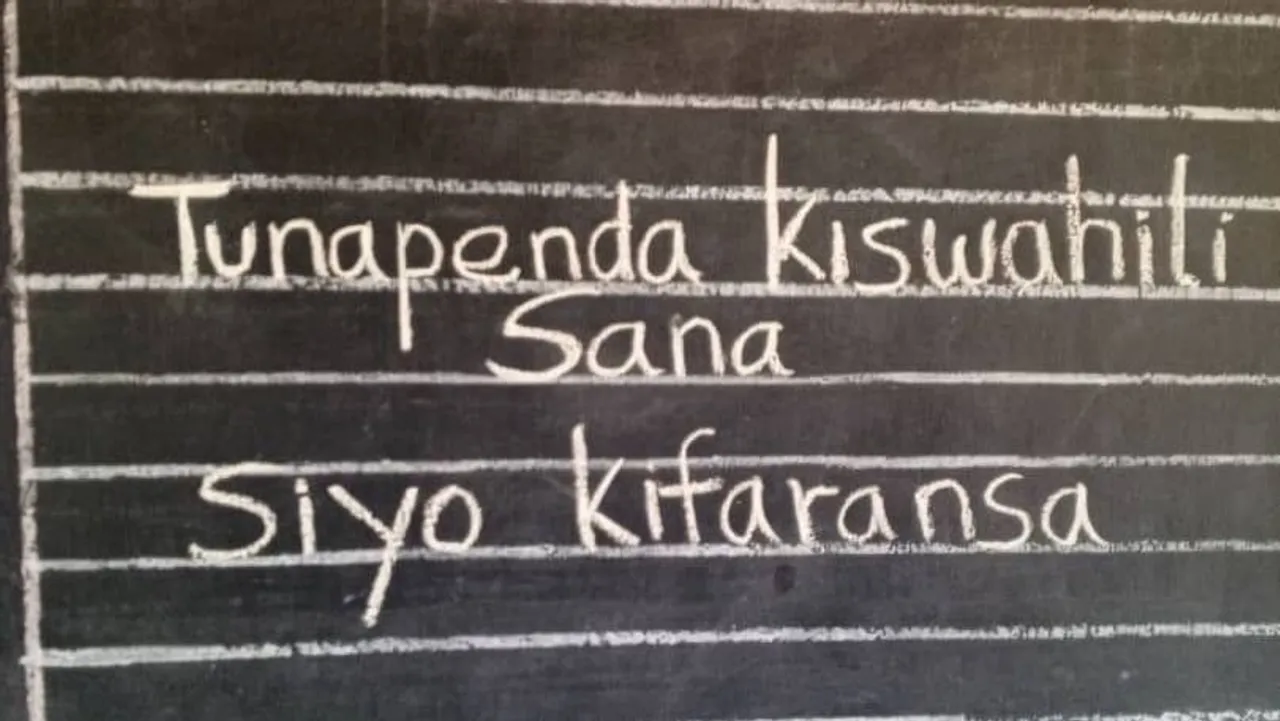 Tunapenda kiswahili
Sana
Siyo kifaransa